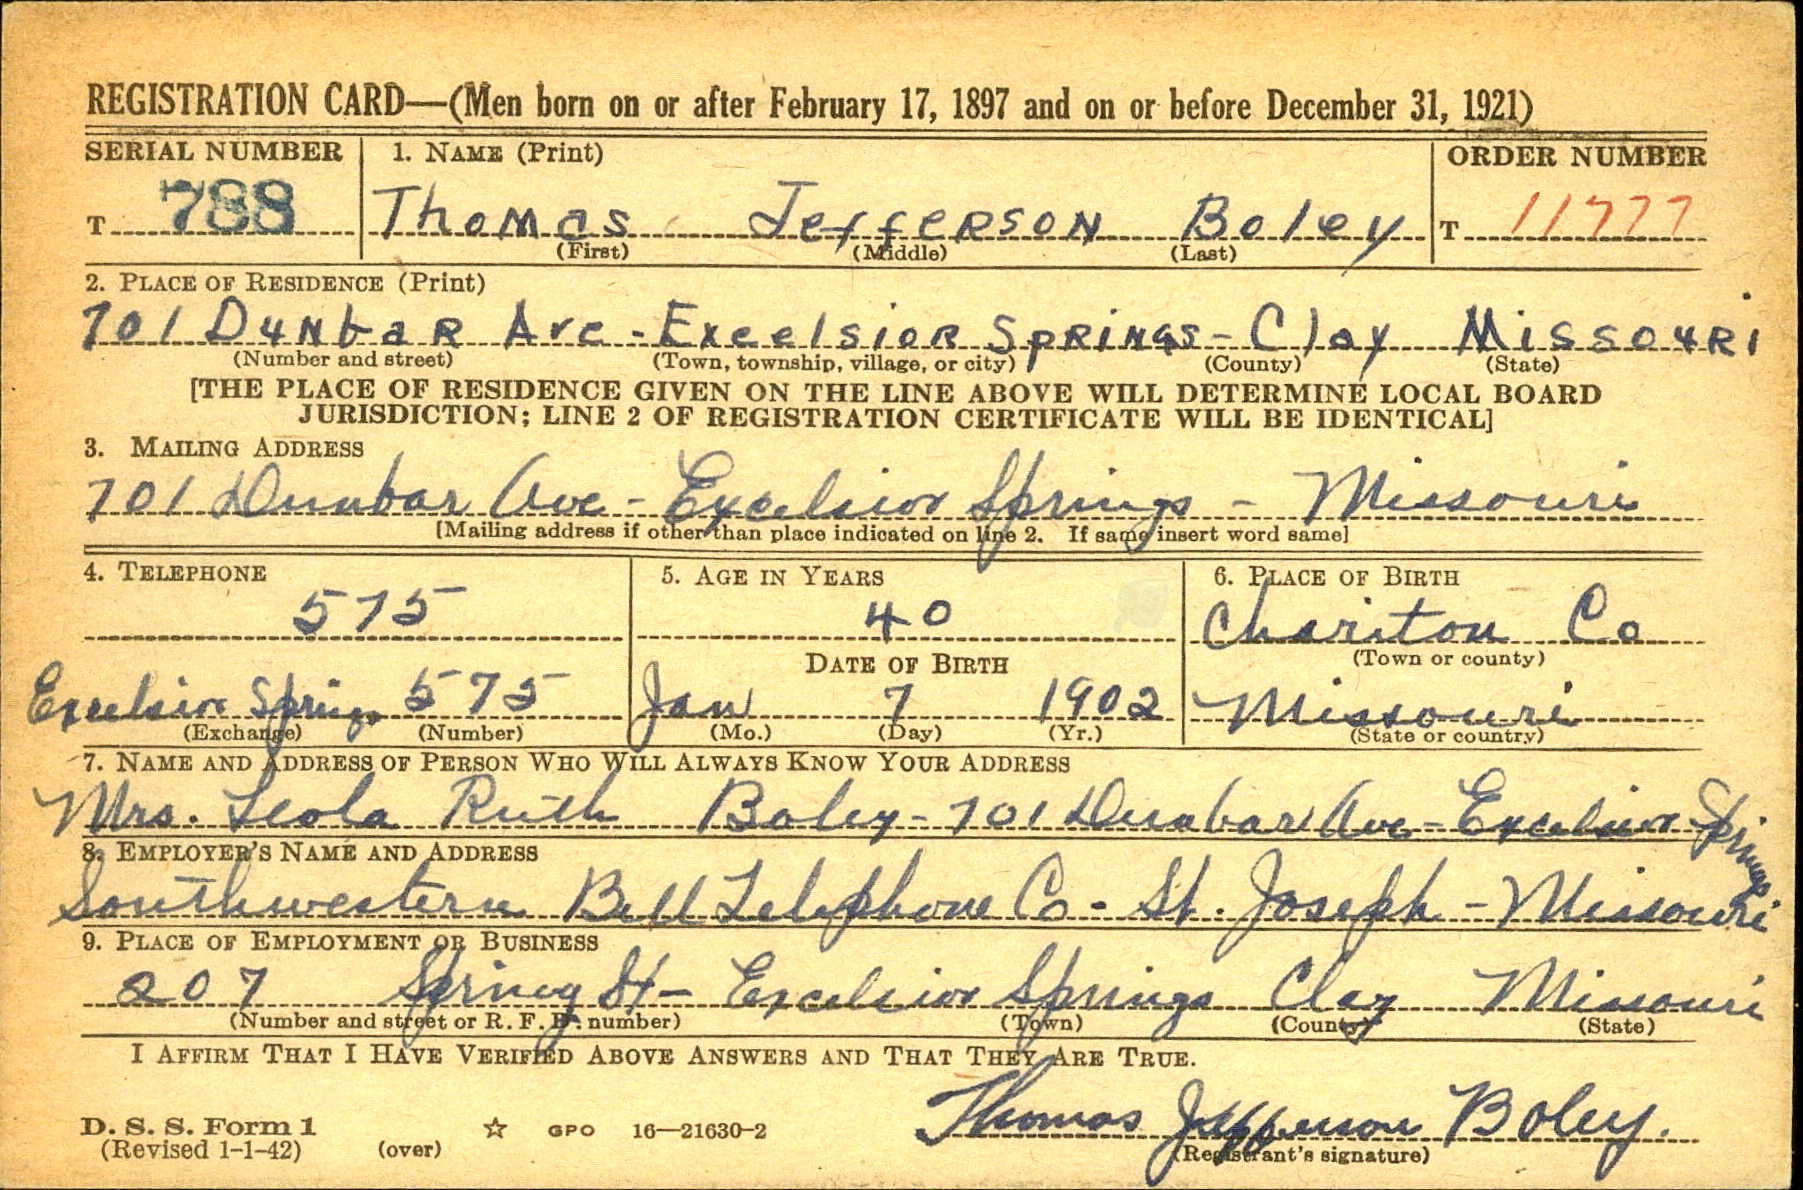 REGISTRATION CARD—(Men born on or after February 17, 1897 and on or before December 31, 1921)
SERIAL NUMBER 1. NAME (Print) ORDER NUMBER
T 788 Thomas Jefferson Boley T 11777
(First) (Middle) (Last)
2. PLACE OF RESIDENCE (Print)
701 Dunbar Ave - Excelsior Springs - Clay Missouri
(Number and street) (Town, township, village, or city) (County) (State)
[THE PLACE OF RESIDENCE GIVEN ON THE LINE ABOVE WILL DETERMINE LOCAL BOARD
JURISDICTION; LINE 2 OF REGISTRATION CERTIFICATE WILL BE IDENTICAL]
3. MAILING ADDRESS
701 Dunbar Ave - Excelsior Springs - Missouri
[Mailing address if other than place indicated on line 2. If same insert word same]
4. TELEPHONE 5. AGE IN YEARS 6. PLACE OF BIRTH
575 40 Chariton Co
DATE OF BIRTH (Town or county)
Excelsior Springs 575 Jan 7 1902 Missouri
(Exchange) (Number) (Mo.) (Day) (Yr.) (State or country)
7. NAME AND ADDRESS OF PERSON WHO WILL ALWAYS KNOW YOUR ADDRESS
Mrs. Leola Ruth Boley - 701 Dunbar Ave - Excelsior Springs
8. EMPLOYER'S NAME AND ADDRESS
Southwestern Bell Telephone Co - St. Joseph - Missouri
9. PLACE OF EMPLOYMENT OR BUSINESS
207 Spring St - Excelsior Springs Clay Missouri
(Number and street or R. F. D. number) (Town) (County) (State)
I AFFIRM THAT I HAVE VERIFIED ABOVE ANSWERS AND THAT THEY ARE TRUE.
D. S. S. Form 1 Thomas Jefferson Boley.
(Revised 1-1-42) (over) ☆ GPO 16—21630-2 (Registrant's signature)